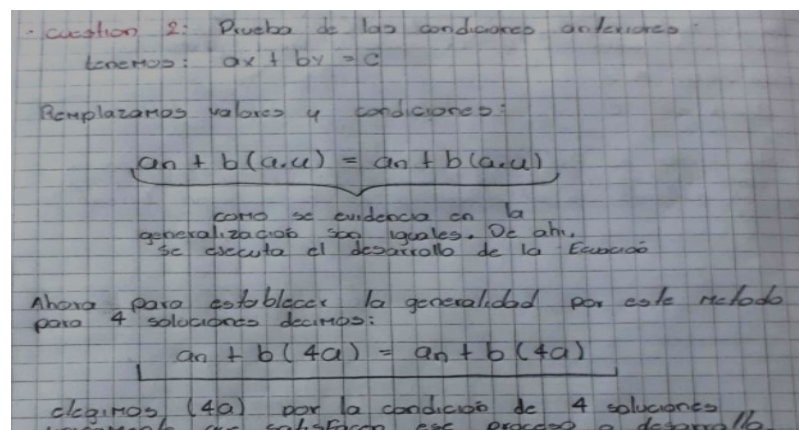 · cuestion 2: Prueba de las condiciones anteriores.
tenemos: ax + by = c
Remplazamos valores y condiciones:
an + b(a.u) = an + b(a.u)
como se evidencia en la
generalización son iguales. De ahi,
se ejecuta el desarrollo de la Ecuación
Ahora para establecer la generalidad por este metodo
para 4 soluciones decimos:
an + b(4a) = an + b(4a)
elegimos (4a) por la condición de 4 soluciones
que satisfacen ese proceso o desarrollo.